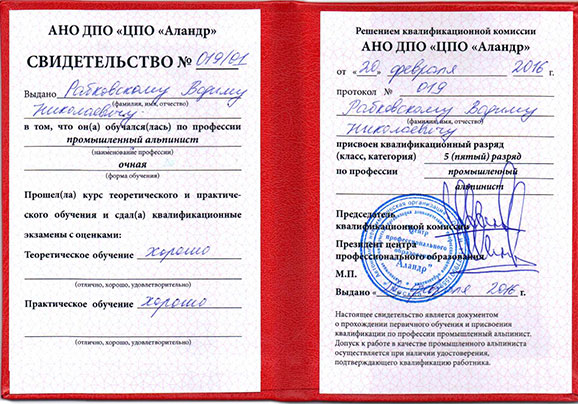 АНО ДПО «ЦПО «Аландр»
СВИДЕТЕЛЬСТВО № 019/01
Выдано Рабковскому Вадиму
(фамилия, имя, отчество)
Николаевичу
в том, что он(а) обучался(лась) по профессии
промышленный альпинист
(наименование профессии)
очная
(форма обучения)
Прошел(ла) курс теоретического и практичес-
ского обучения и сдал(а) квалификационные
экзамены с оценками:
Теоретическое обучение хорошо
(отлично, хорошо, удовлетворительно)
Практическое обучение хорошо
(отлично, хорошо, удовлетворительно)
Решением квалификационной комиссии
АНО ДПО «ЦПО «Аландр»
от «20» февраля 2016 г.
протокол № 019
Рабковскому Вадиму
(фамилия, имя, отчество)
Николаевичу
присвоен квалификационный разряд
(класс, категория) 5 (пятый) разряд
по профессии промышленный
альпинист
Председатель
квалификационной комиссии
Президент центра
профессионального образования
М.П.
Выдано « февраля 2016 г.
Центр
профессионального
образования
"Аландр"
Настоящее свидетельство является документом
о прохождении первичного обучения и присвоения
квалификации по профессии промышленный альпинист.
Допуск к работе в качестве промышленного альпиниста
осуществляется при наличии удостоверения,
подтверждающего квалификацию работника.